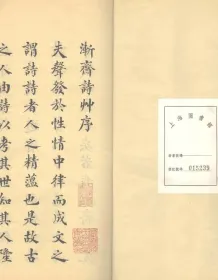 漸齋詩艸序
夫聲發於性情中律而成文之
謂詩詩者人之精蘊也是故古
之人由詩以考其世知其人隆
上海圖書館
015239